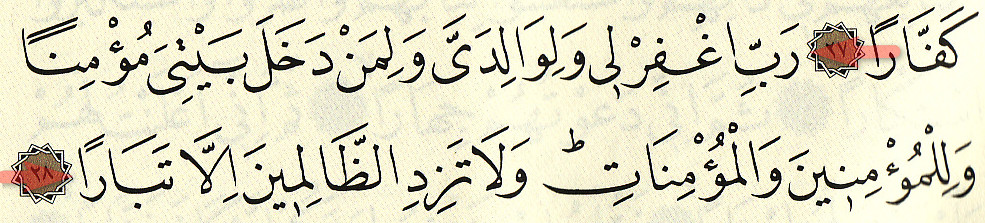 كَفَّارًا ﴿٢٧﴾ رَبِّ اغْفِرْ لٖى وَلِوَالِدَىَّ وَلِمَنْ دَخَلَ بَيْتِىَ مُؤْمِنًا
وَلِلْمُؤْمِنٖينَ وَالْمُؤْمِنَاتِ ؕ وَلَا تَزِدِ الظَّالِمٖينَ اِلَّا تَبَارًا ﴿٢٨﴾